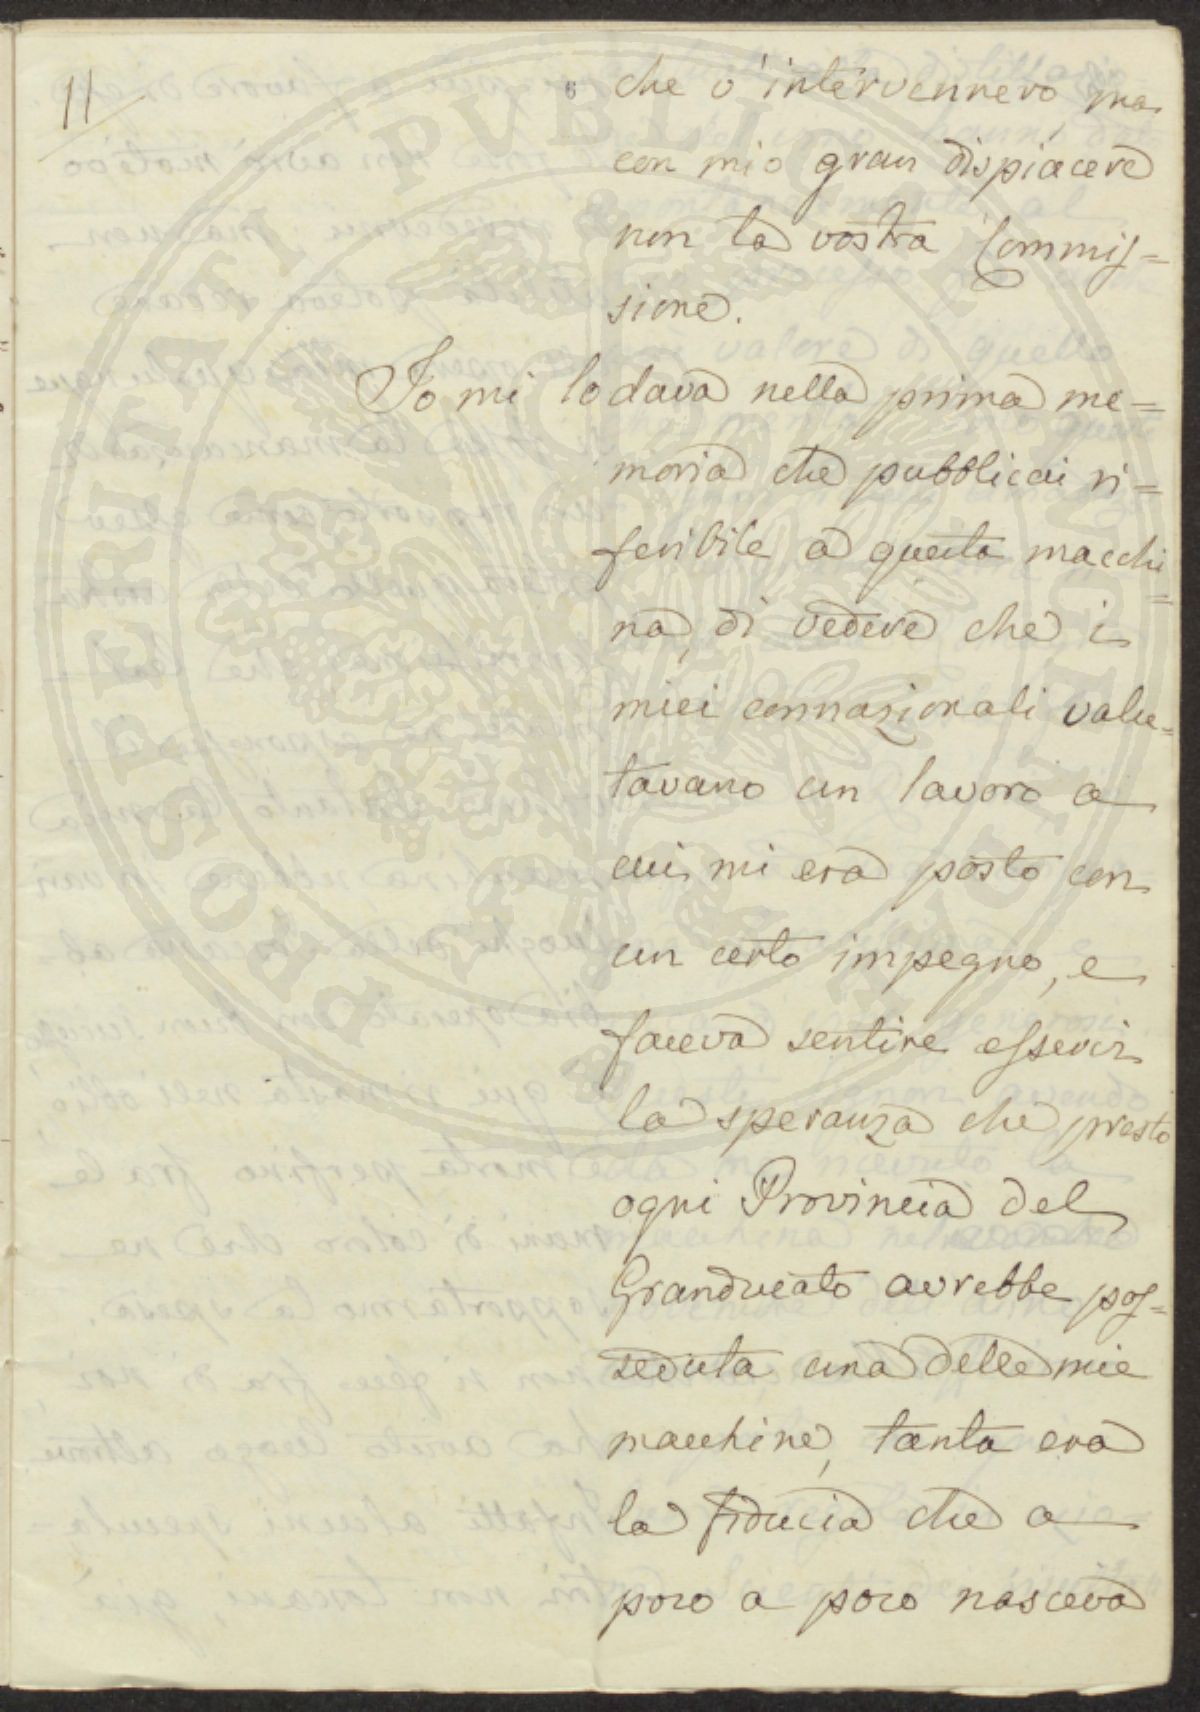 11
6
che v'intervennero, ma
con mio gran dispiacere
non la vostra Commis=
sione.
Io mi lodava nella prima me=
moria che pubblicai ri=
feribile a questa macchi=
na, di vedere che i
miei connazionali valu=
tavano un lavoro a
cui mi era posto con
un certo impegno, e
faceva sentire esservi
la speranza che presto
ogni Provincia del
Granducato avrebbe pos=
seduta una delle mie
macchine, tanta era
la fiducia che a
poco a poco nasceva
PROSPERITATI PVBLICAE AVGENDAE